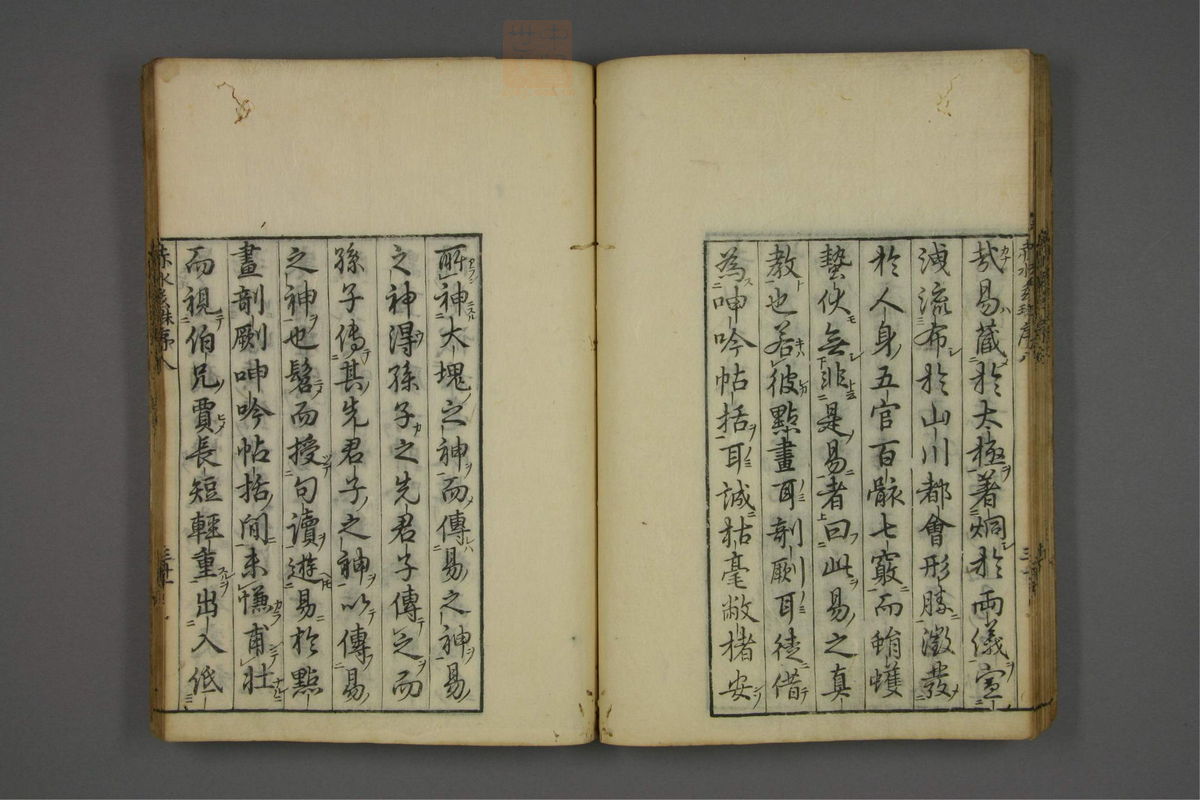 哉易蔵於太極著炯於兩儀宣
洩流布於山川都會形勝澂發
於人身五官百骸七竅而蜎蠖
蟄伏無非是易者曰此易之真
教也若彼點畫耳剞劂耳徒借
為呻吟帖括耳誠枯毫敝楮安
所神大塊之神而傳易之神易
之神得孫子之先君子傳之而
孫子傳其先君子之神以傳易
之神也髫而授句讀遊易於點
畫剞劂呻吟帖括間未慊甫壯
而視伯兄賈長短輕重出入低
赤水玄珠序 八